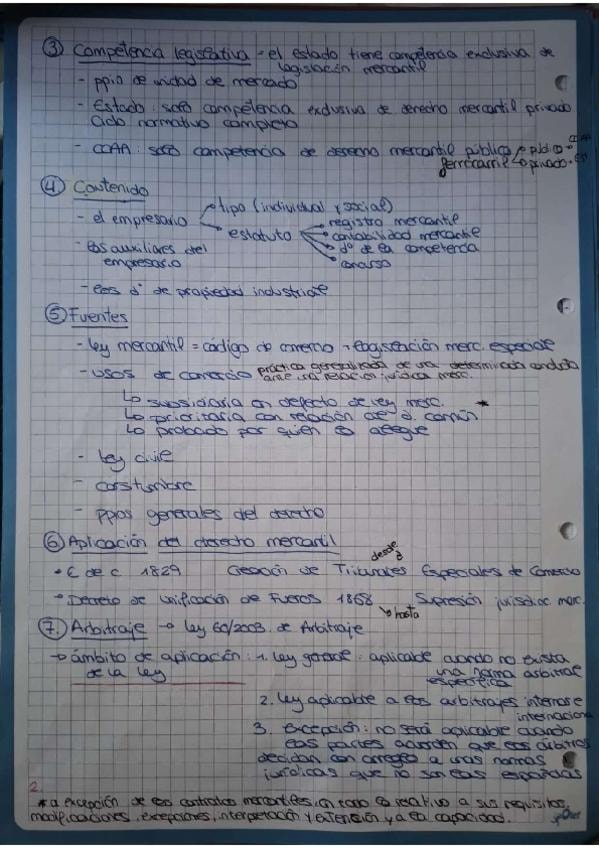 ③ Competencia legislativa - el estado tiene competencia exclusiva de
legislación mercantil
- ppio de unidad de mercado
- Estado: solo competencia exclusiva de derecho mercantil privado
Ciclo normativo completo
- CCAA: solo competencia de derecho mercantil público público → CCAA
ferrocarril privado → Est
④ Contenido
- el empresario tipo (individual y social)
estatuto → registro mercantil
→ contabilidad mercantil
→ dº de la competencia
→ concurso
- los auxiliares del
empresario
- los dº de propiedad industrial
⑤ Fuentes
- ley mercantil = código de comercio + legislación merc. especial
- usos de comercio práctica generalizada de una determinada conducta
ante una relación jurídica merc.
↳ subsidiaria en defecto de ley merc.
↳ prioritaria con relación al d. común *
↳ probado por quien lo alegue
- ley civil
- costumbre
- ppios generales del derecho
⑥ Aplicación del derecho mercantil
desde
• C de c 1829 Creación de Tribunales Especiales de Comercio
• Decreto de Unificación de Fueros 1868 Supresión jurisdicc merc.
↳ hasta
⑦ Arbitraje → ley 60/2003 de Arbitraje
→ ámbito de aplicación: 1. ley general: aplicable cuando no exista
de la ley una norma arbitral
específica
2. ley aplicable a los arbitrajes internos e
internaciona
3. excepción: no será aplicable cuando
las partes acuerden que los árbitros
decidan con arreglo a unas normas
jurídicas que no son las españolas
2.
* a excepción de los contratos mercantiles, en todo lo relativo a sus requisitos,
modificaciones, excepciones, interpretación y extinción y a la capacidad.